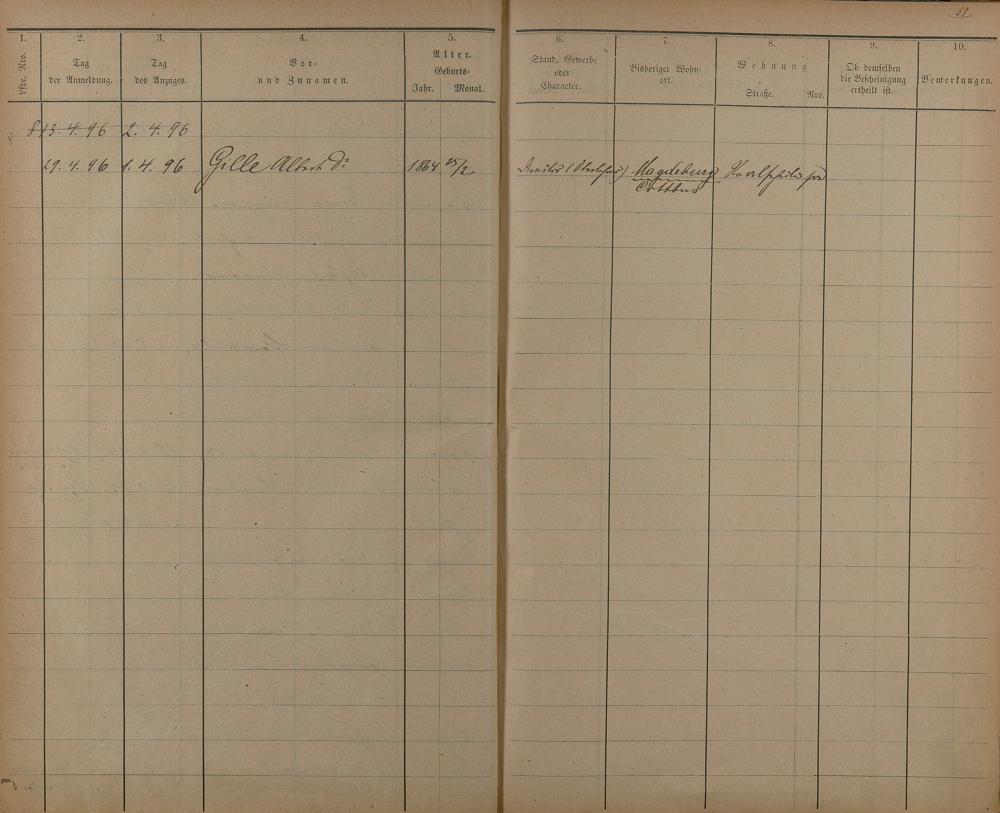 51
1. 2. 3. 4. 5. 6. 7. 8. 9. 10.
Lfde. Nro.
Tag
der Anmeldung.
Tag
des Anzuges.
Vor-
und Zunamen.
Alter.
Geburts-
Jahr. Monat.
Stand, Gewerbe
oder
Character.
Bisheriger Wohn-
ort.
Wohnung
Straße. Nro.
Ob demselben
die Bescheinigung
ertheilt ist.
Bemerkungen.
8 13. 4. 96 2. 4. 96
29. 4. 96 1. 4. 96 Gille Albert Dr 1864 25/2 Director Magdeburg
Cottbus